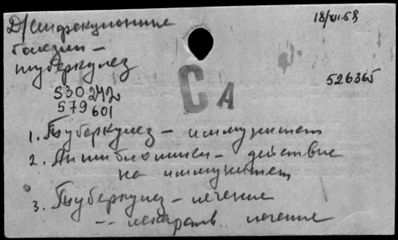 Д/Инфекционные
болезни –
туберкулез
18/XI.58
530242
579601
526365
СА
1. Туберкулез – иммунитет
2. Антибиотики – действие
на иммунитет
3. Туберкулез – лечение
–"– лекарств. лечение